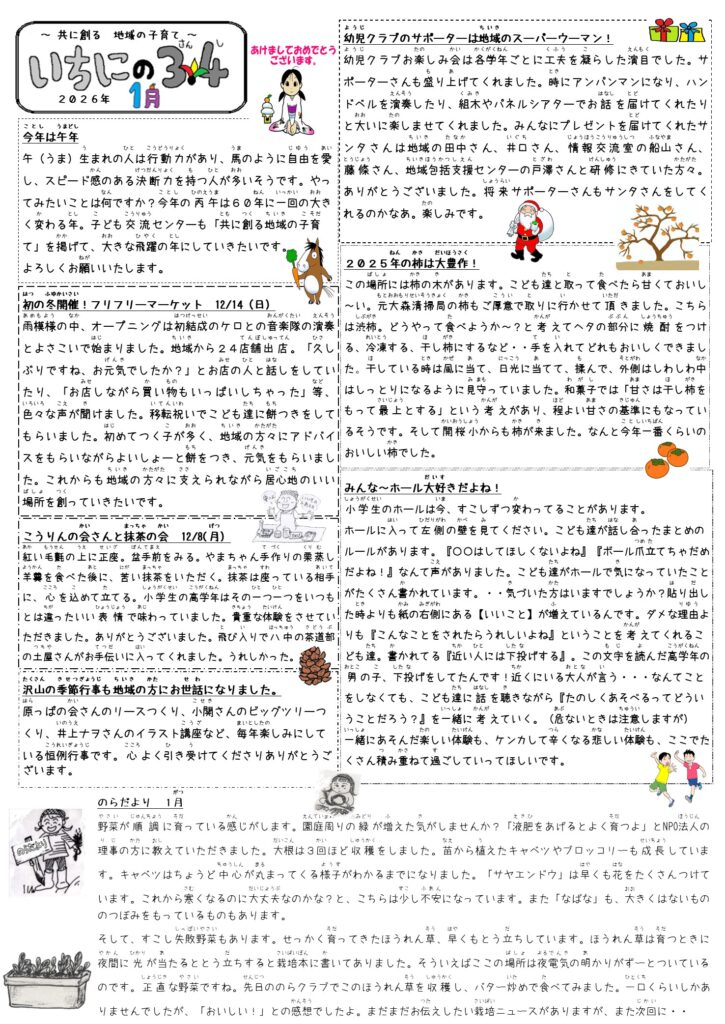 ～ 共に創る 地域の子育て ～
いちにの3,4
さん し
2026年 1月
あけましておめでとう
ございます。
今年は午年
午（うま）生まれの人は行動力があり、馬のように自由を愛
し、スピード感のある決断力を持つ人が多いそうです。やっ
てみたいことは何ですか？今年の丙午は６０年に一回の大き
く変わる年。子ども交流センターも「共に創る地域の子育
て」を掲げて、大きな飛躍の年にしていきたいです。
よろしくお願いいたします。
初の冬開催！フリフリーマーケット 12/14（日）
雨模様の中、オープニングは初結成のケロとの音楽隊の演奏
とよさこいで始まりました。地域から２４店舗出店。「久し
ぶりですね、お元気でしたか？」とお店の人と話しをしてい
たり、「お店しながら買い物もいっぱいしちゃった」等、
色々な声が聞けました。移転祝いでこども達に餅つきをして
もらいました。初めてつく子が多く、地域の方々にアドバイ
スをもらいながらよいしょーと餅をつき、元気をもらいまし
た。これからも地域の方々に支えられながら居心地のいい
場所を創っていきたいです。
こうりんの会さんと抹茶の会 12/8(月)
紅い毛氈の上に正座。盆手前をみる。やまちゃん手作りの栗蒸し
羊羹を食べた後に、苦い抹茶をいただく。抹茶は座っている相手
に、心を込めて立てる。小学生の高学年はその一つ一つをいつも
とは違ったいい表情で味わっていました。貴重な体験をさせてい
ただきました。ありがとうございました。飛び入りで八中の茶道部
の土屋さんがお手伝いに入ってくれました。うれしかった。
沢山の季節行事も地域の方にお世話になりました。
原っぱの会さんのリースつくり、小関さんのビッグツリーつ
くり、井上ナヲさんのイラスト講座など、毎年楽しみにして
いる恒例行事です。心よく引き受けてくださりありがとうご
ざいます。
幼児クラブのサポーターは地域のスーパーウーマン！
幼児クラブお楽しみ会は各学年ごとに工夫を凝らした演目でした。サ
ポーターさんも盛り上げてくれました。時にアンパンマンになり、ハン
ドベルを演奏したり、組木やパネルシアターでお話を届けてくれたり
と大いに楽しませてくれました。みんなにプレゼントを届けてくれたサ
ンタさんは地域の田中さん、井口さん、情報交流室の船山さん、
藤條さん、地域包括支援センターの戸澤さんと研修にきていた方々。
ありがとうございました。将来サポーターさんもサンタさんをしてく
れるのかなあ。楽しみです。
２０２５年の柿は大豊作！
この場所には柿の木があります。こども達と取って食べたら甘くておいし
～い。元大森清掃局の柿もご厚意で取りに行かせて頂きました。こちら
は渋柿。どうやって食べようか～？と考えてヘタの部分に焼酎をつけ
る、冷凍する、干し柿にするなど・・手を入れてどれもおいしくできまし
た。干している時は風に当て、日光に当てて、揉んで、外側はしわしわ中
はしっとりになるように見守っていました。和菓子では「甘さは干し柿を
もって最上とする」という考えがあり、程よい甘さの基準にもなってい
るそうです。そして開桜小からも柿が来ました。なんと今年一番くらいの
おいしい柿でした。
みんな～ホール大好きだよね！
小学生のホールは今、すこしずつ変わってることがあります。
ホールに入って左側の壁を見てください。こども達が話し合ったまとめの
ルールがあります。『〇〇はしてほしくないよね』『ボール爪立てちゃだめ
だよね！』なんて声がありました。こども達がホールで気になっていたこと
がたくさん書かれています。・・気づいた方はいますでしょうか？貼り出し
た時よりも紙の右側にある【いいこと】が増えているんです。ダメな理由よ
りも『こんなことをされたらうれしいよね』ということを考えてくれるこ
ども達。書かれてる『近い人には下投げする』。この文字を読んだ高学年の
男の子、下投げをしてたんです！近くにいる大人が言う・・・なんてこと
をしなくても、こども達に話を聴きながら『たのしくあそべるってどうい
うことだろう？』を一緒に考えていく。（危ないときは注意しますが）
一緒にあそんだ楽しい体験も、ケンカして辛くなる悲しい体験も、ここでた
くさん積み重ねて過ごしていってほしいです。
のらだより １月
野菜が順調に育っている感じがします。園庭周りの緑が増えた気がしませんか？「液肥をあげるとよく育つよ」とNPO法人の
理事の方に教えていただきました。大根は３回ほど収穫をしました。苗から植えたキャベツやブロッコリーも成長していま
す。キャベツはちょうど中心が丸まってくる様子がわかるまでになりました。「サヤエンドウ」は早くも花をたくさんつけて
います。これから寒くなるのに大丈夫なのかな？と、こちらは少し不安になっています。また「なばな」も、大きくはないもの
のつぼみをもっているものもあります。
そして、すこし失敗野菜もあります。せっかく育ってきたほうれん草、早くもとう立ちしています。ほうれん草は育つときに
夜間に光が当たるととう立ちすると栽培本に書いてありました。そういえばここの場所は夜電気の明かりがずーとついている
のです。正直な野菜ですね。先日ののらクラブでこのほうれん草を収穫し、バター炒めで食べてみました。一口くらいしかあ
りませんでしたが、「おいしい！」との感想でしたよ。まだまだお伝えしたい栽培ニュースがありますが、また次回に・・